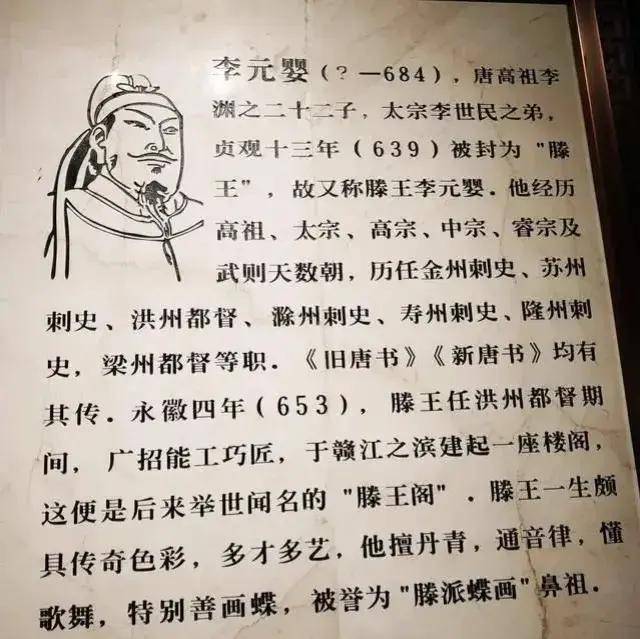 李元婴（？—684），唐高祖李
渊之二十二子，太宗李世民之弟，
贞观十三年（639）被封为"滕
王"，故又称滕王李元婴．他经历
高祖、太宗、高宗、中宗、睿宗及
武则天数朝，历任金州刺史、苏州
刺史、洪州都督、滁州刺史、寿州刺史、隆州刺
史，梁州都督等职．《旧唐书》《新唐书》均有
其传．永徽四年（653），滕王任洪州都督期
间，广招能工巧匠，于赣江之滨建起一座楼阁，
这便是后来举世闻名的"滕王阁"．滕王一生颇
具传奇色彩，多才多艺，他擅丹青，通音律，懂
歌舞，特别善画蝶，被誉为"滕派蝶画"鼻祖．